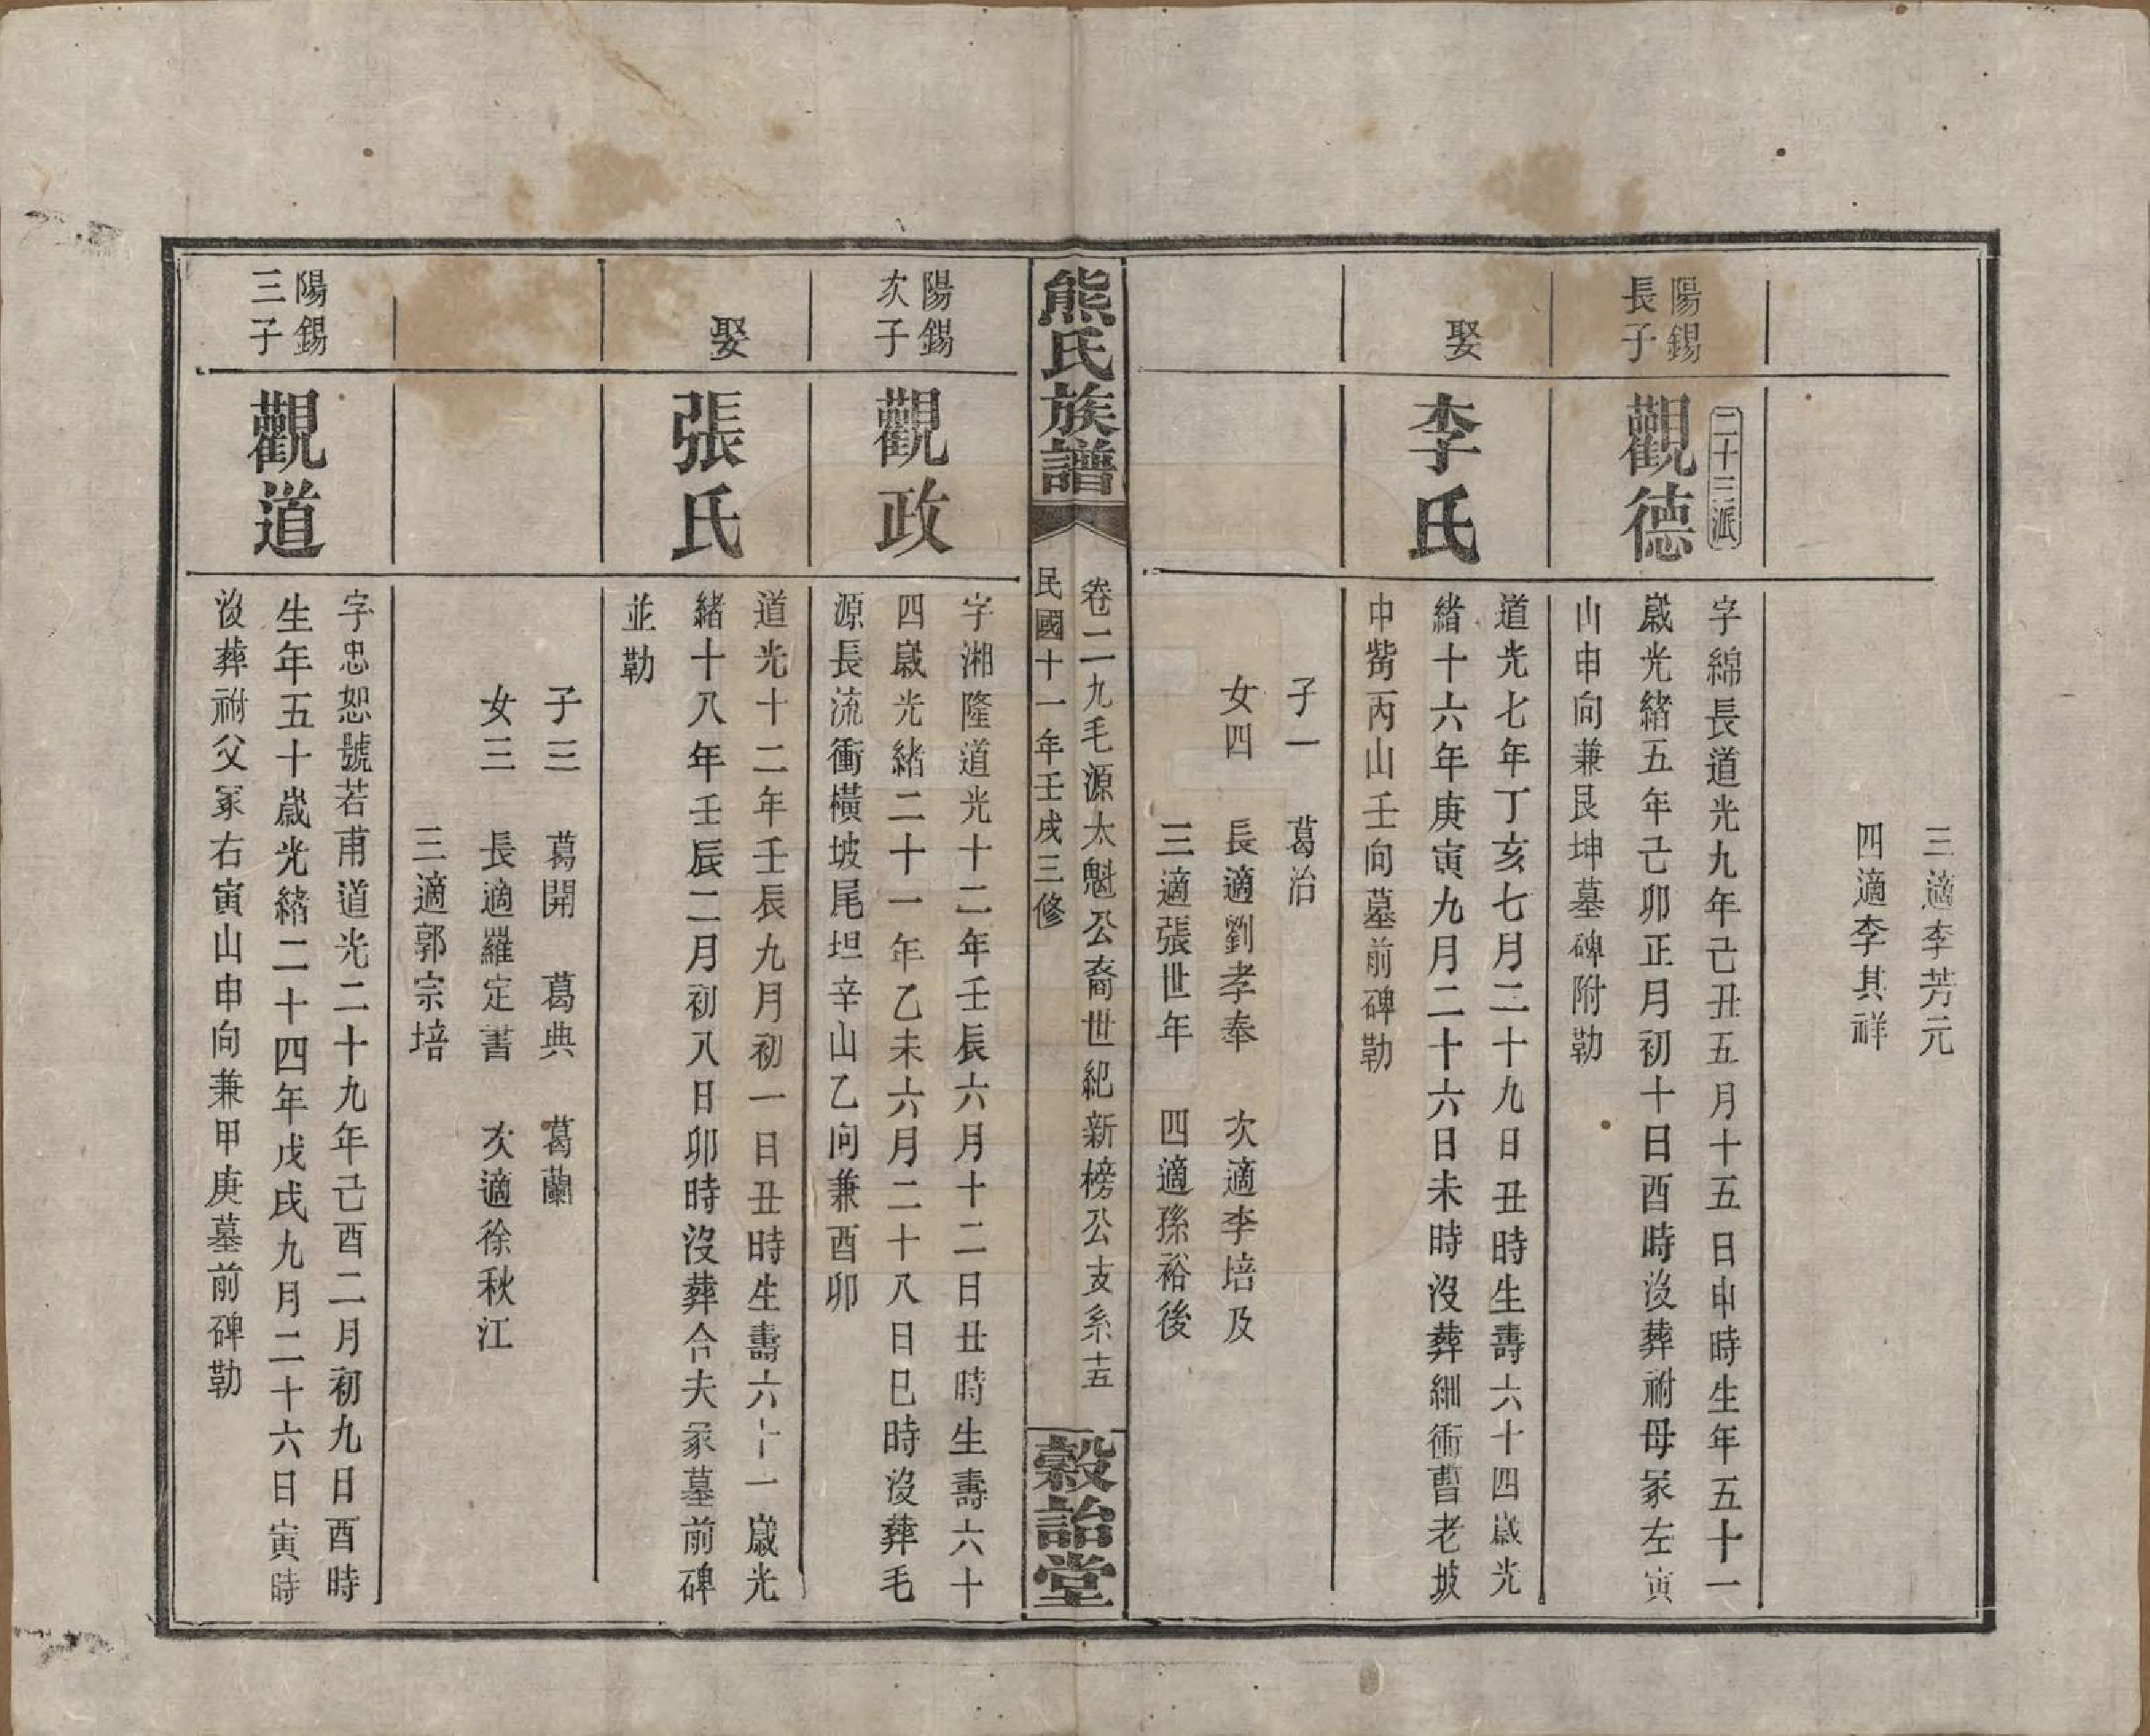 三適李芳元
四適李其祥
二十三派
陽錫
長子
觀德
字綿長道光九年己丑五月十五日申時生年五十一
歲光緒五年己卯正月初十日酉時沒葬祔母冢左寅
山申向兼艮坤墓碑附勒
娶
李氏
道光七年丁亥七月二十九日丑時生壽六十四歲光
緒十六年庚寅九月二十六日未時沒葬細衝曹老坡
中觜丙山壬向墓前碑勒
子一 葛治
女四 長適劉孝奉 次適李培及
三適張世年 四適孫裕後
熊氏族譜
卷二九毛源太魁公裔世紀新榜公支系十五
民國十一年壬戌三修
穀詒堂
陽錫
次子
觀政
字湘隆道光十二年壬辰六月十二日丑時生壽六十
四歲光緒二十一年乙未六月二十八日巳時沒葬毛
源長流衝橫坡尾坦辛山乙向兼酉卯
娶
張氏
道光十二年壬辰九月初一日丑時生壽六十一歲光
緒十八年壬辰二月初八日卯時沒葬合夫冢墓前碑
並勒
子三 葛開 葛典 葛蘭
女三 長適羅定書 次適徐秋江
三適郭宗培
陽錫
三子
觀道
字忠恕號若甫道光二十九年己酉二月初九日酉時
生年五十歲光緒二十四年戊戌九月二十六日寅時
沒葬祔父冢右寅山申向兼甲庚墓前碑勒